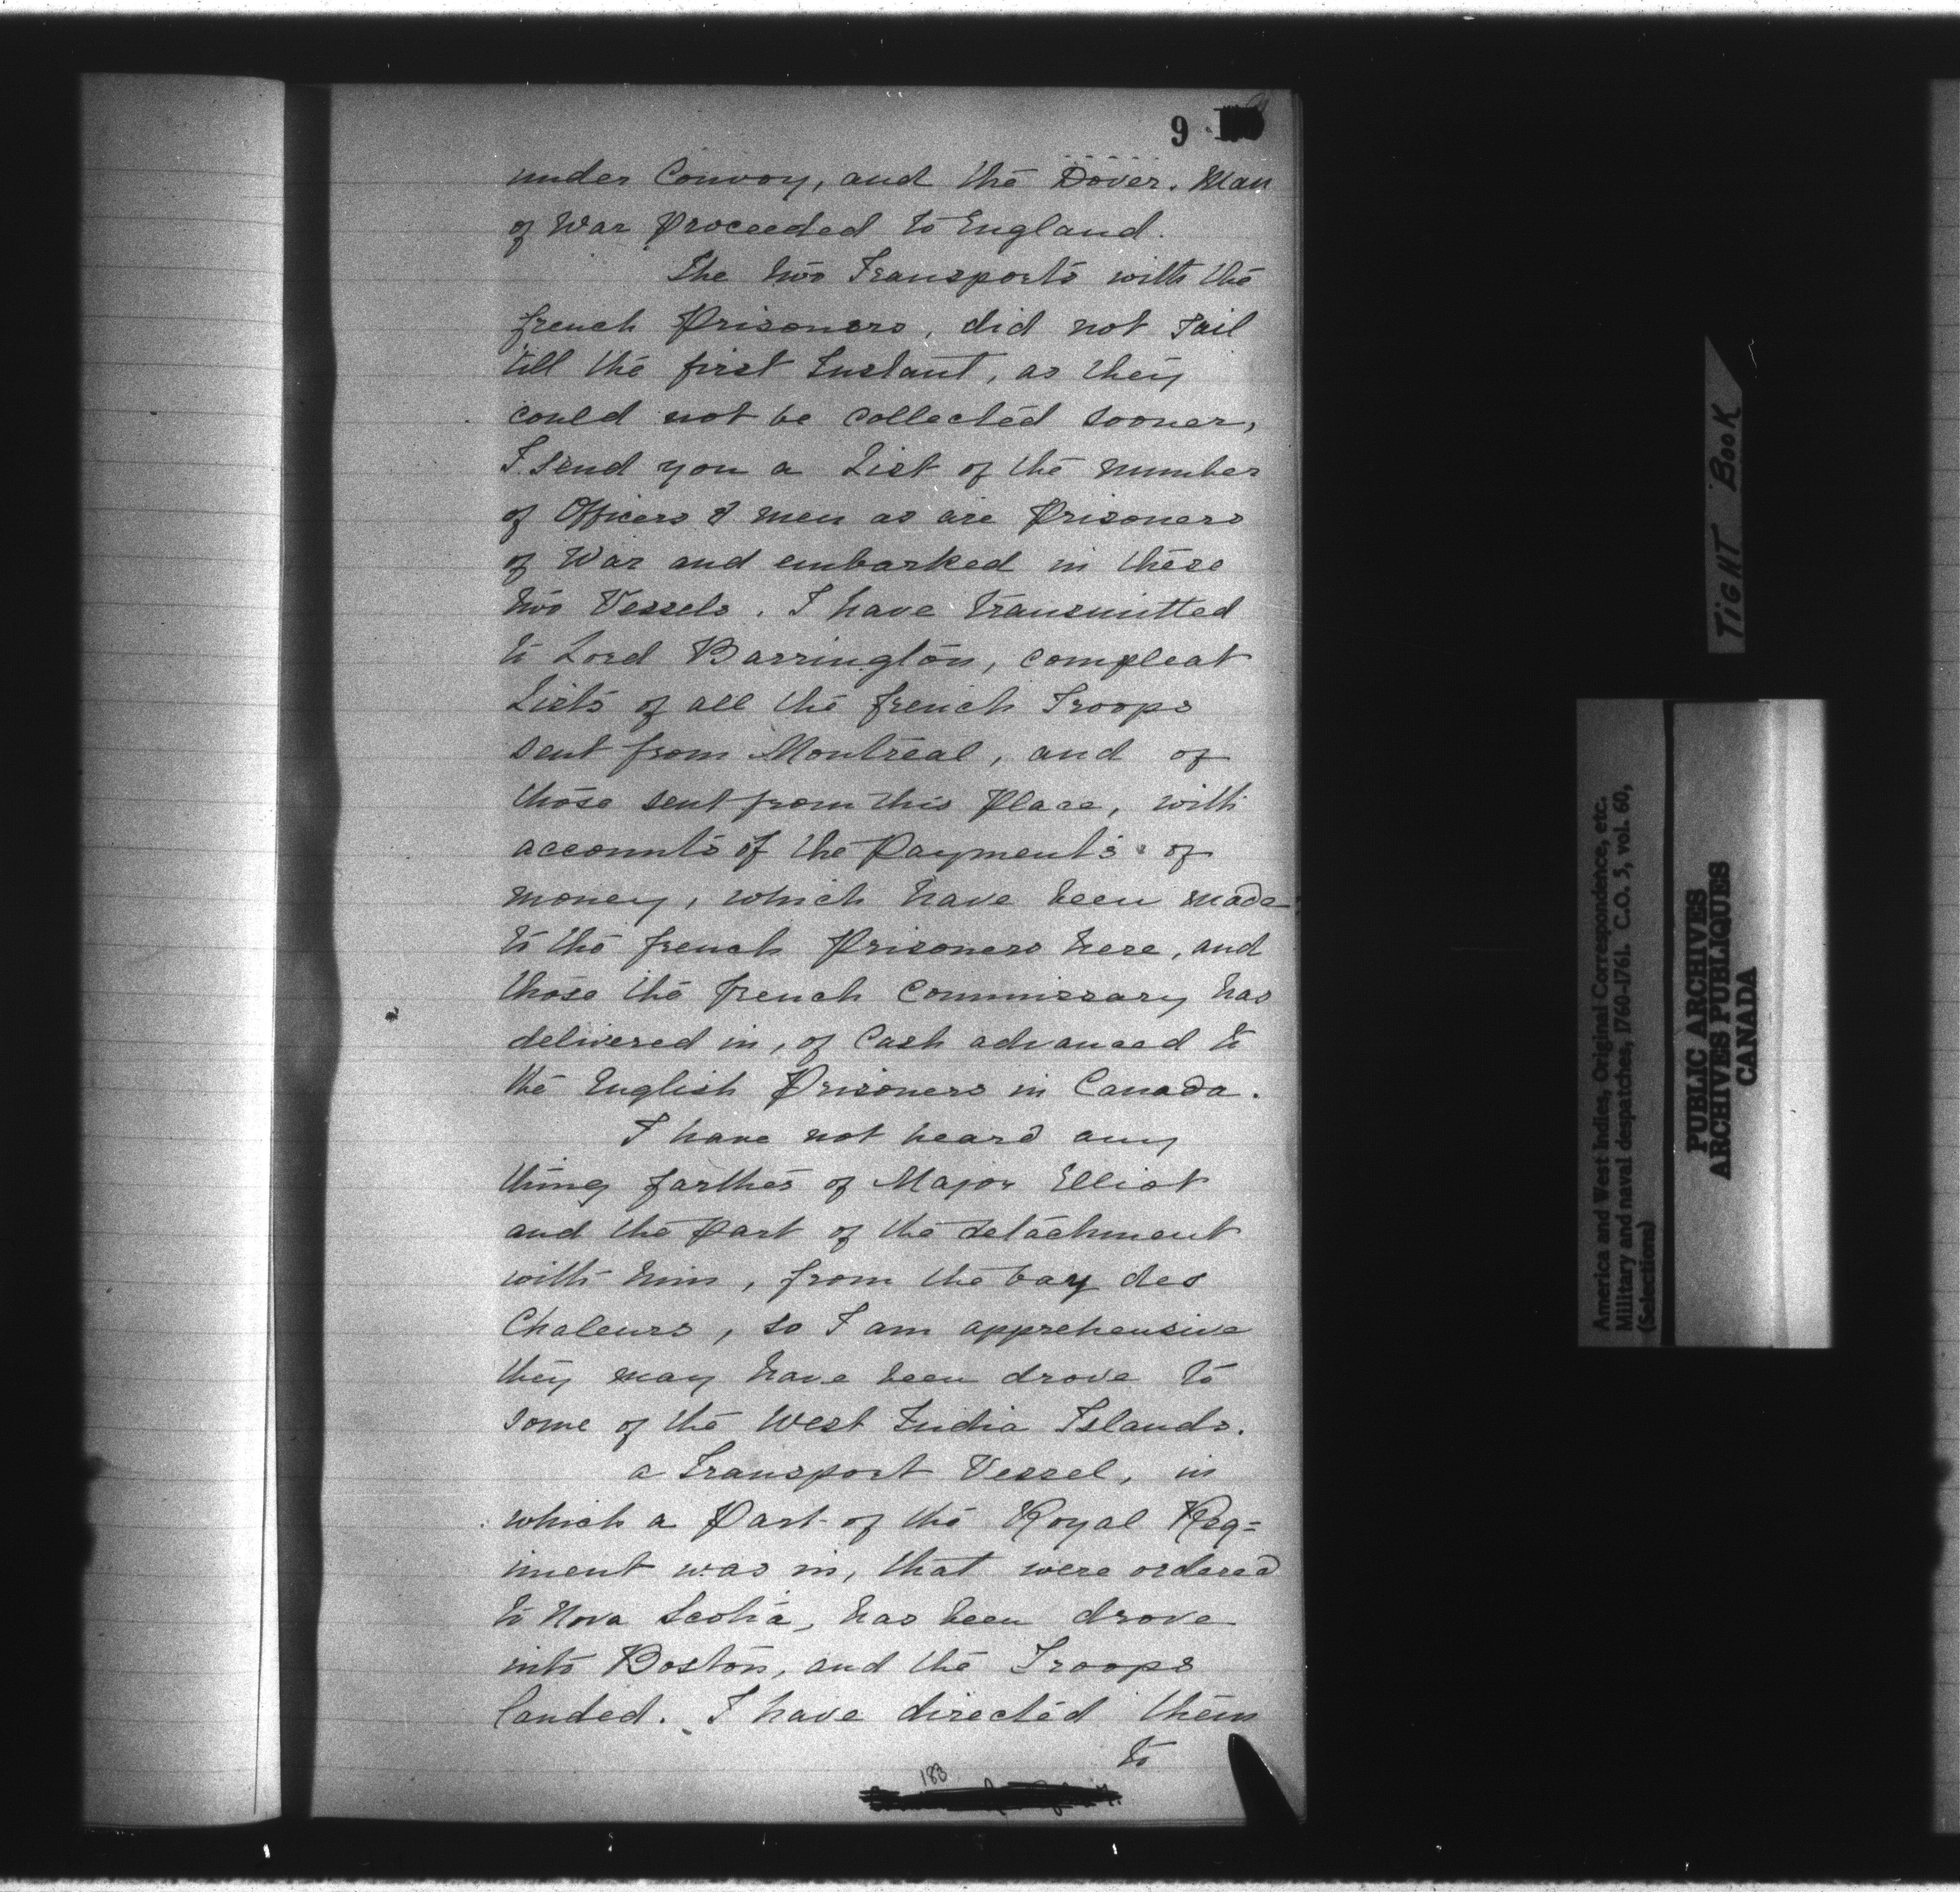 9
under Convoy, and the Dover. Man
of War Proceeded to England.
The two Transports with the
french Prisoners, did not Sail
till the first Instant, as they
could not be collected sooner,
I send you a List of the number
of Officers & men as are Prisoners
of War and embarked in these
two Vessels. I have transmitted
to Lord Barrington, compleat
Lists of all the french Troops
sent from Montreal, and of
those sent from this Place, with
accounts of the Payments of
money, which have been made
to the french Prisoners here, and
those the french Commissary has
delivered in, of Cash advanced to
the English Prisoners in Canada.
I have not heard any
thing farther of Major Elliot
and the Part of the detachment
with him, from the bay des
Chaleurs, so I am apprehensive
they may have been drove to
some of the West India Islands.
a Transport Vessel, in
which a Part of the Royal Reg=
iment was in, that were ordered
to Nova Scotia, has been drove
into Boston, and the Troops
landed. I have directed them
to
183
TIGHT BOOK
America and West Indies, Original Correspondence, etc.
Military and naval despatches, 1760-1761. C.O. 5, vol. 60,
(Selections)
PUBLIC ARCHIVES
ARCHIVES PUBLIQUES
CANADA